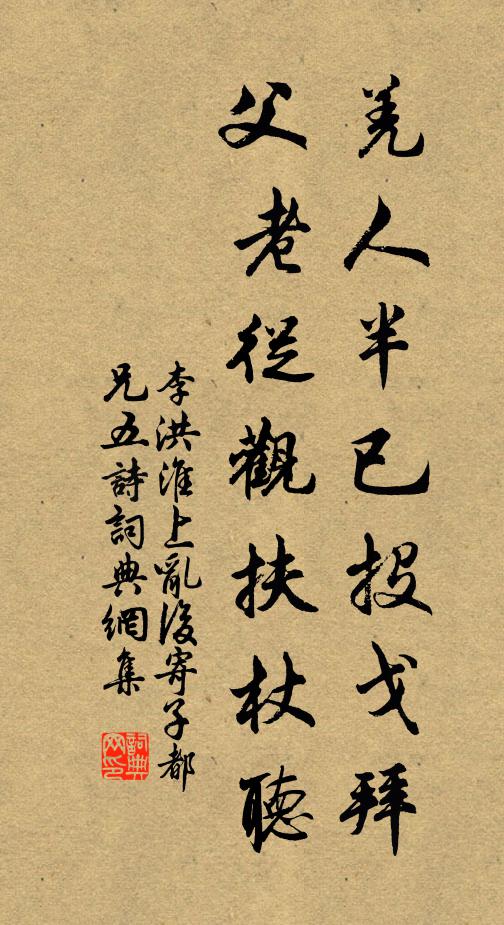 羌人半已投戈拜
父老從觀扶杖聽
李洪淮上亂後寄子都
兄五詩詞典網集
詞典
网印